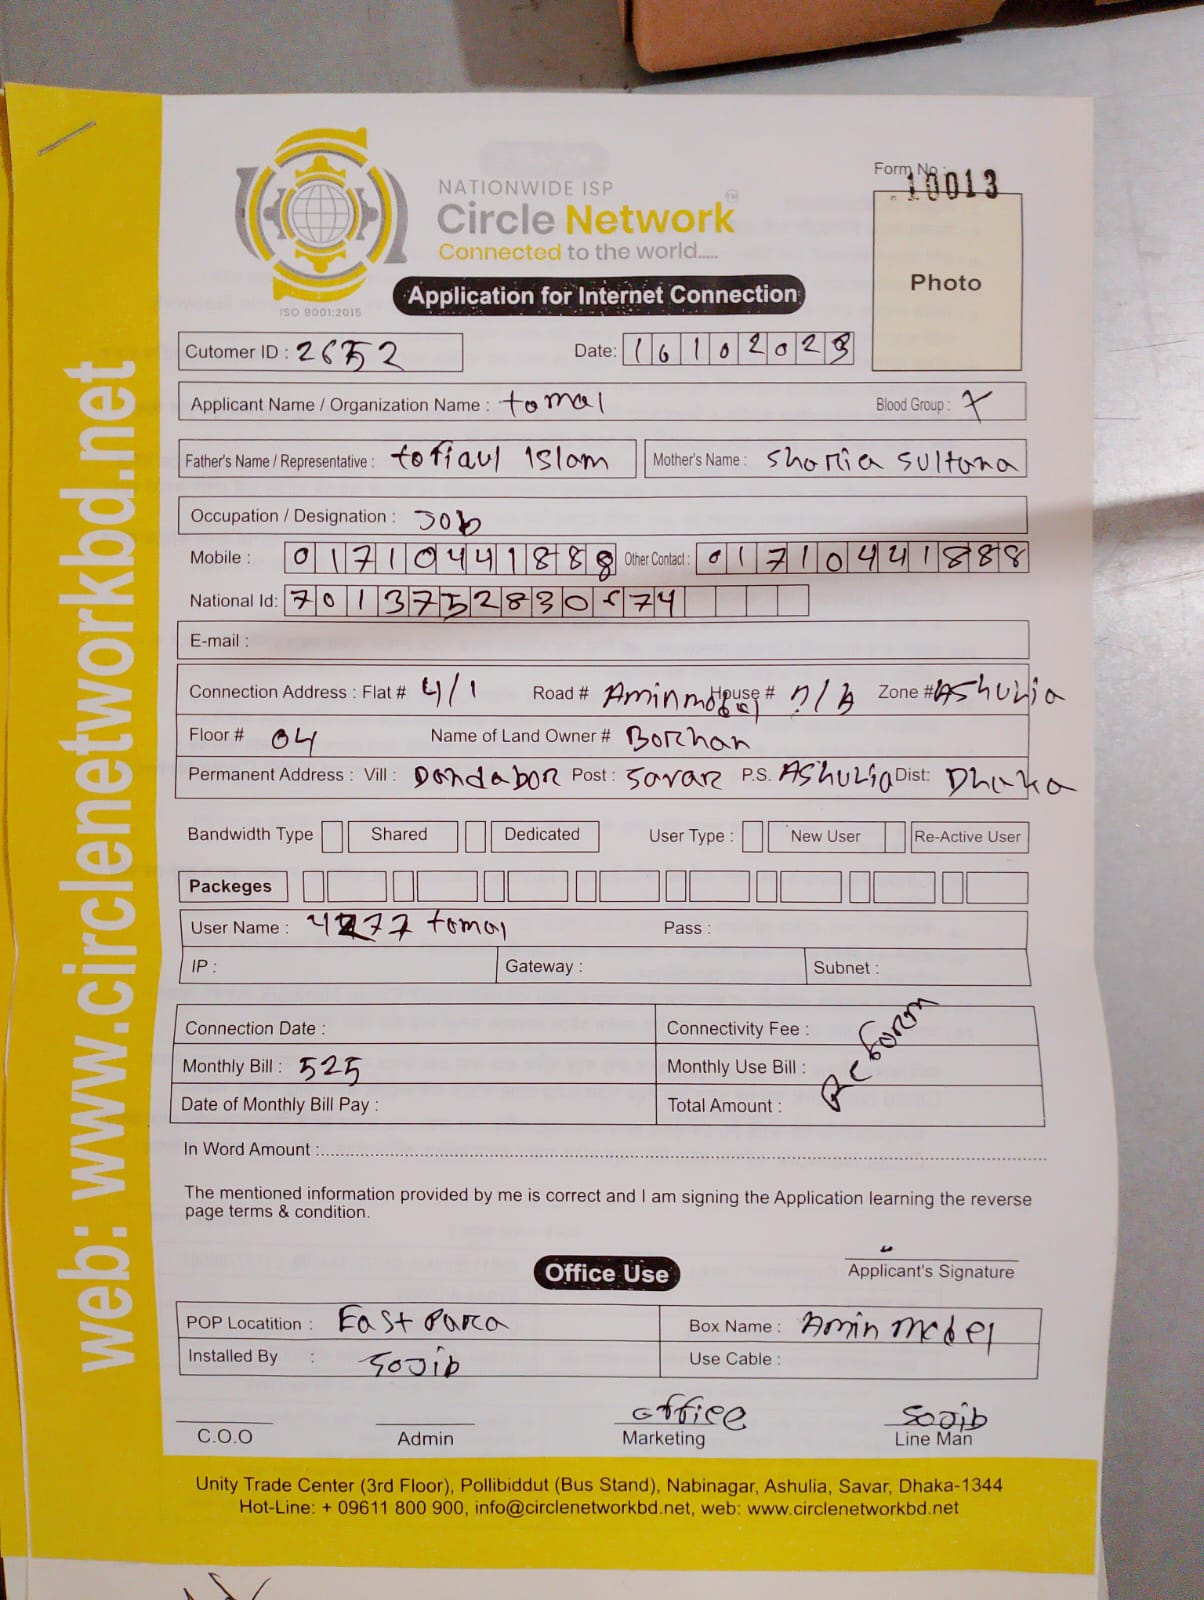 web: www.circlenetworkbd.net
NATIONWIDE ISP
Circle Network
Connected to the world.....
ISO 9001:2015
Form No :
10013
Photo
Application for Internet Connection
Cutomer ID : 2652
Date: 16102023
Applicant Name / Organization Name : tomal Blood Group :
Father's Name / Representative : tofiaul Islam Mother's Name : Sultana
Occupation / Designation : Job
Mobile : 01710441888 Other Contact : 01710441888
National Id: 7013752830 74
E-mail :
Connection Address : Flat # 4/1 Road # Aminmodel House # n/A Zone # AShulia
Floor # 04 Name of Land Owner # Borhan
Permanent Address : Vill : Dondabor Post : Savar P.S. AShulia Dist: Dhaka
Bandwidth Type Shared Dedicated User Type : New User Re-Active User
Packeges
User Name : 4277 tomal Pass :
IP : Gateway : Subnet :
Connection Date : Connectivity Fee :
Monthly Bill : 525 Monthly Use Bill :
Date of Monthly Bill Pay : Total Amount :
Re form
In Word Amount :
The mentioned information provided by me is correct and I am signing the Application learning the reverse
page terms & condition.
Applicant's Signature
Office Use
POP Locatition : East Para Box Name : Amin model
Installed By : Sojib Use Cable :
office Sojib
C.O.O Admin Marketing Line Man
Unity Trade Center (3rd Floor), Pollibiddut (Bus Stand), Nabinagar, Ashulia, Savar, Dhaka-1344
Hot-Line: + 09611 800 900, info@circlenetworkbd.net, web: www.circlenetworkbd.net